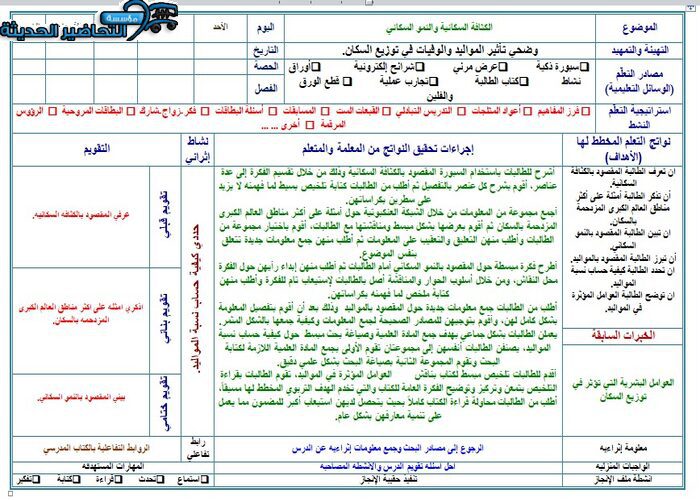 مؤسسة
التحاضير الحديثة
الموضوع
الكثافة السكانية والنمو السكاني
اليوم
الأحد
التهيئة والتمهيد
وضحي تأثير المواليد والوفيات في توزيع السكان.
التاريخ
مصادر التعلّم
(الوسائل التعليمية)
سبورة ذكية عرض مرئي شرائح إلكترونية أوراق
نشاط كتاب الطالبة تجارب عملية قطع الورق
والفلين
الحصة
الفصل
استراتيجية التعلّم
النشط
فرز المفاهيم أعواد المثلجات التدريس التبادلي القبعات الست المسابقات أسئلة البطاقات فكر.زواج.شارك البطاقات المروحية الرؤوس
المرقمة أخرى ... ...
نواتج التعلم المخطط لها
(الأهداف)
إجراءات تحقيق النواتج من المعلمة والمتعلم
نشاط
إثرائي
التقويم
ان تعرف الطالبة المقصود بالكثافة
السكانية.
أن تذكر الطالبة أمثلة على أكثر
مناطق العالم الكبرى المزدحمة
بالسكان.
ان تبين الطالبة المقصود بالنمو
السكاني.
أن تبرز الطالبة المقصود بالمواليد.
ان تحدد الطالبة كيفية حساب نسبة
المواليد.
ان توضح الطالبة العوامل المؤثرة
في المواليد.
الخبرات السابقة
العوامل البشرية التي تؤثر في
توزيع السكان
أشرح للطالبات باستخدام السبورة المقصود بالكثافة السكانية وذلك من خلال تقسيم الفكرة إلى عدة
عناصر. أقوم بشرح كل عنصر بالتفصيل ثم أطلب من الطالبات كتابة تلخيص بسيط لما فهمته لا يزيد
على سطرين بكراساتهن.
أجمع مجموعة من المعلومات من خلال الشبكة العنكبوتية حول أمثلة على أكثر مناطق العالم الكبرى
المزدحمة بالسكان ثم أقوم بعرضها بشكل مبسط ومناقشتها مع الطالبات. أقوم باختيار مجموعة من
الطالبات وأطلب منهن التعليق والتعقيب على المعلومات ثم أطلب منهن جمع معلومات جديدة تتعلق
بنفس الموضوع.
أطرح فكرة مبسطة حول المقصود بالنمو السكاني أمام الطالبات ثم أطلب منهن إبداء رأيهن حول الفكرة
محل النقاش، ومن خلال أسلوب الحوار والمناقشة أصل بالطالبات لإستيعاب تام للفكرة وأطلب منهن
كتابة ملخص لما فهمته بكراساتهن.
أطلب من الطالبات جمع معلومات جديدة حول المقصود بالمواليد وذلك بعد أن أقوم بتفصيل المعلومة
بشكل كامل لهن، وأقوم بتوجيههن للمصادر الصحيحة لجمع المعلومات وكيفية جمعها بالشكل المثمر.
يعمل الطالبات بشكل جماعي بهدف جمع المادة العلمية وصياغة بحث مبسط حول كيفية حساب نسبة
المواليد، يصنفن الطالبات أنفسهن إلى مجموعتان تقوم الأولى بجمع المادة العلمية اللازمة لكتابة
البحث وتقوم المجموعة الثانية بصياغة البحث بشكل علمي دقيق.
أقدم للطالبات تلخيص مبسط لكتاب يناقش العوامل المؤثرة في المواليد، تقوم الطالبات بقراءة
التلخيص بتمعن وتركيز وتوضيح الفكرة العامة للكتاب والتي تخدم الهدف التربوي المخطط لها مسبقاً،
أطلب من الطالبات محاولة قراءة الكتاب كاملاً بحيث يتحصل لديهن استيعاب أكبر للمضمون مما يعمل
على تنمية معارفهن بشكل عام.
حددي كيفية حساب نسبة المواليد.
تقويم قبلي
عرفي المقصود بالكثافه السكانيه.
تقويم بنائي
اذكري امثله على اكثر مناطق العالم الكبرى
المزدحمه بالسكان.
تقويم ختامي
بيني المقصود بالنمو السكاني.
معلومة إثرائية
الرجوع إلى مصادر البحث وجمع معلومات إثرائيه عن الدرس
رابط
تفاعلي
الروابط التفاعلية بالكتاب المدرسي
الواجبات المنزليه
احل اسئله تقويم الدرس والأنشطه المصاحبه
المهارات المستهدفه
أنشطة ملف الإنجاز
تنفيذ حقيبة الإنجاز
استماع تحدث قراءة كتابة تفكير